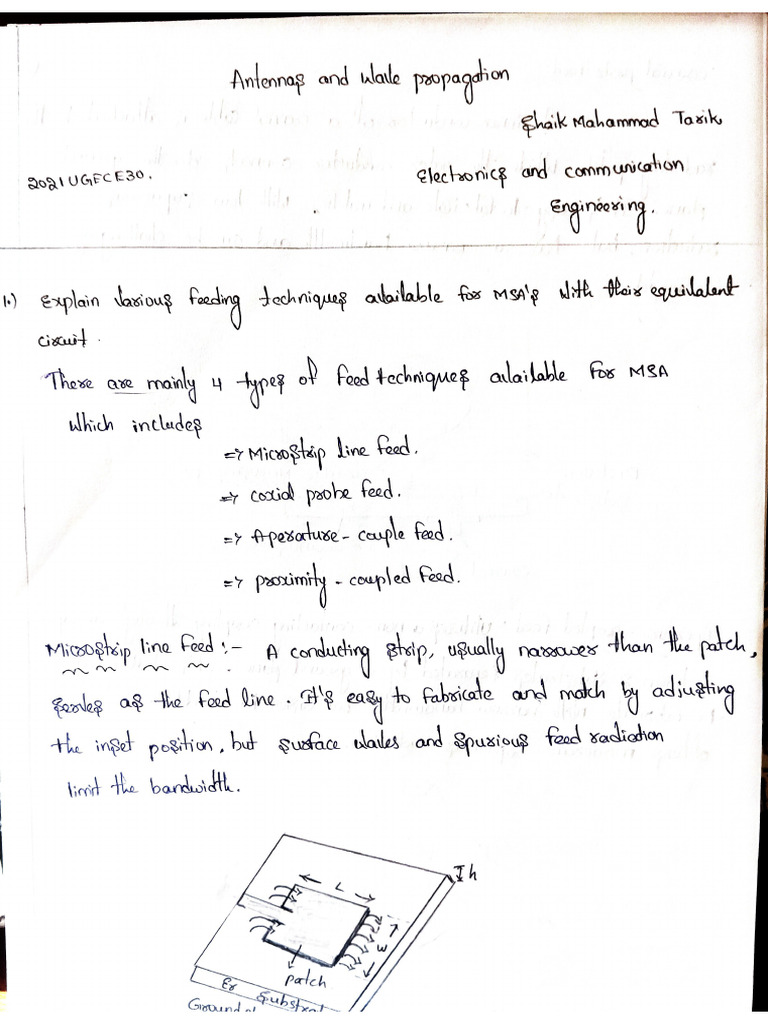 Antennas and Wave propagation
Shaik Mahammad Tarik
2021UGECE30.
Electronics and communication
Engineering.
1.) Explain various feeding techniques available for MSA's with their equivalent
circuit.
There are mainly 4 types of feed techniques available for MSA
which includes
=> Microstrip line feed.
=> coxial probe feed.
=> Aperature - couple feed.
=> proximity - coupled feed.
Microstrip line feed :- A conducting strip, usually narrower than the patch,
serves as the feed line. It's easy to fabricate and match by adjusting
the inset position, but surface waves and spurious feed radiation
limit the bandwidth.
h
L
W
patch
Er Substrat
Ground